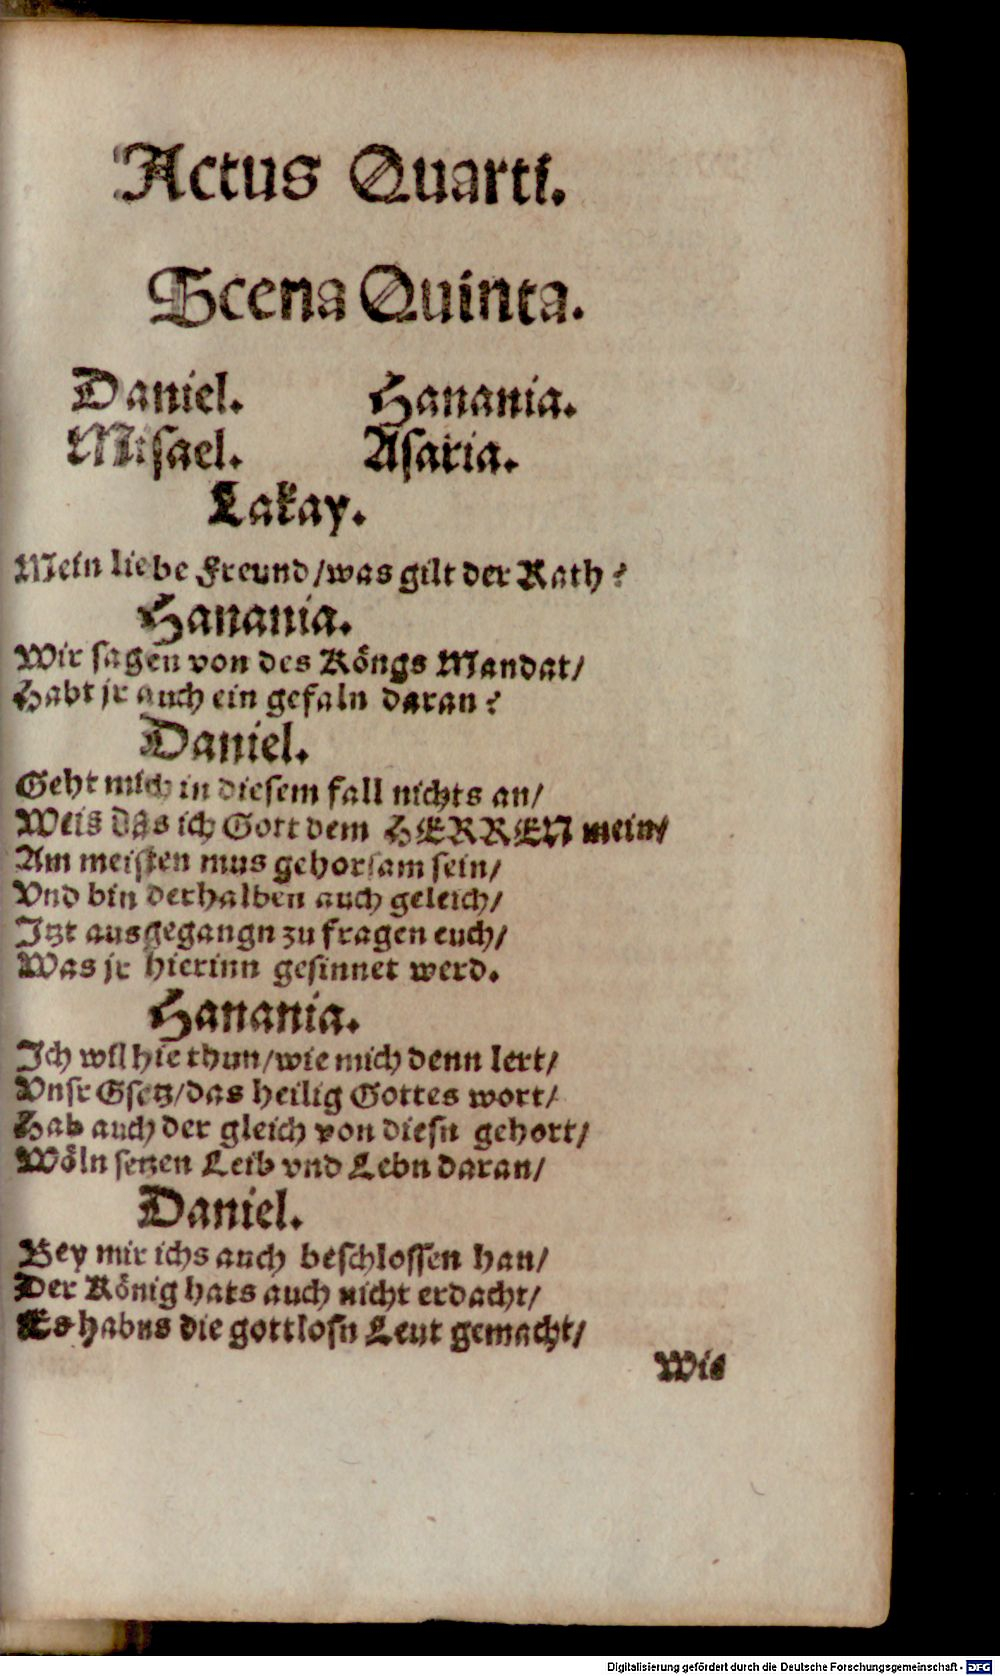 Actus Quarti.
Scena Quinta.
Daniel. Hanania.
Misael. Asaria.
Lakay.
Mein liebe Freund/was gilt der Rath?
Hanania.
Wir sagen von des Köngs Mandat/
Habt jr auch ein gefaln daran?
Daniel.
Geht mich in diesem fall nichts an/
Weis das ich Gott dem HERREN mein/
Am meisten mus gehorsam sein/
Vnd bin derhalben auch geleich/
Itzt ausgegangn zu fragen euch/
Was jr hierinn gesinnet werd.
Hanania.
Ich wil hie thun/wie mich denn lert/
Vnsr Gsetz/das heilig Gottes wort/
Hab auch der gleich von diesn gehort/
Wöln setzen Leib vnd Lebn daran/
Daniel.
Bey mir ichs auch beschlossen han/
Der König hats auch nicht erdacht/
Es habns die gottlosn Leut gemacht/
Wis
Digitalisierung gefördert durch die Deutsche Forschungsgemeinschaft - DFG